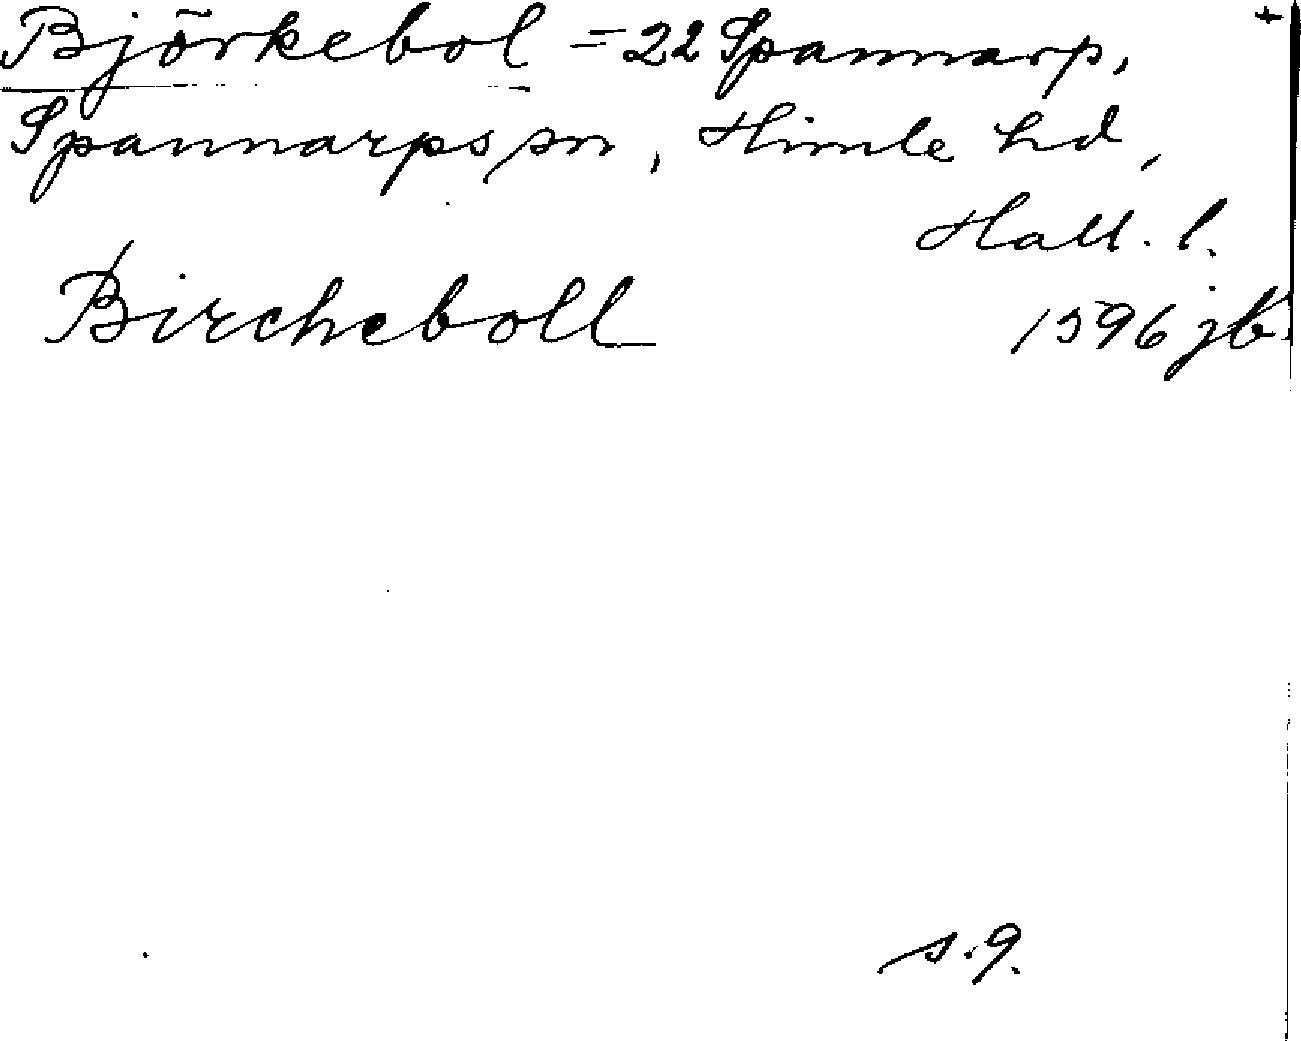 Björkebol = 22 Spannarp, +
Spannarps sn, Himle hd,
Hall. l.
Bircheboll 1596 jb.
s. 9.